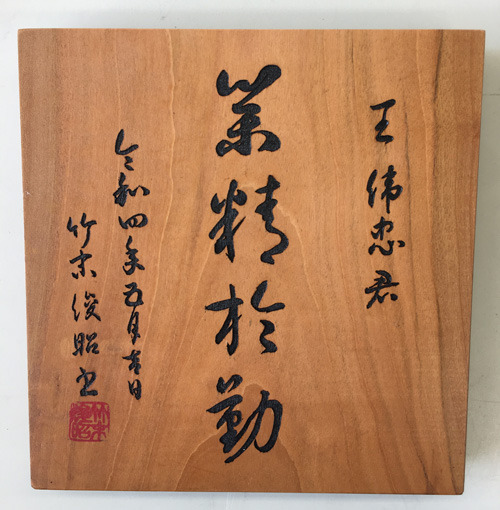 王偉忠君
業精於勤
令和四年五月吉日
竹本俊昭书